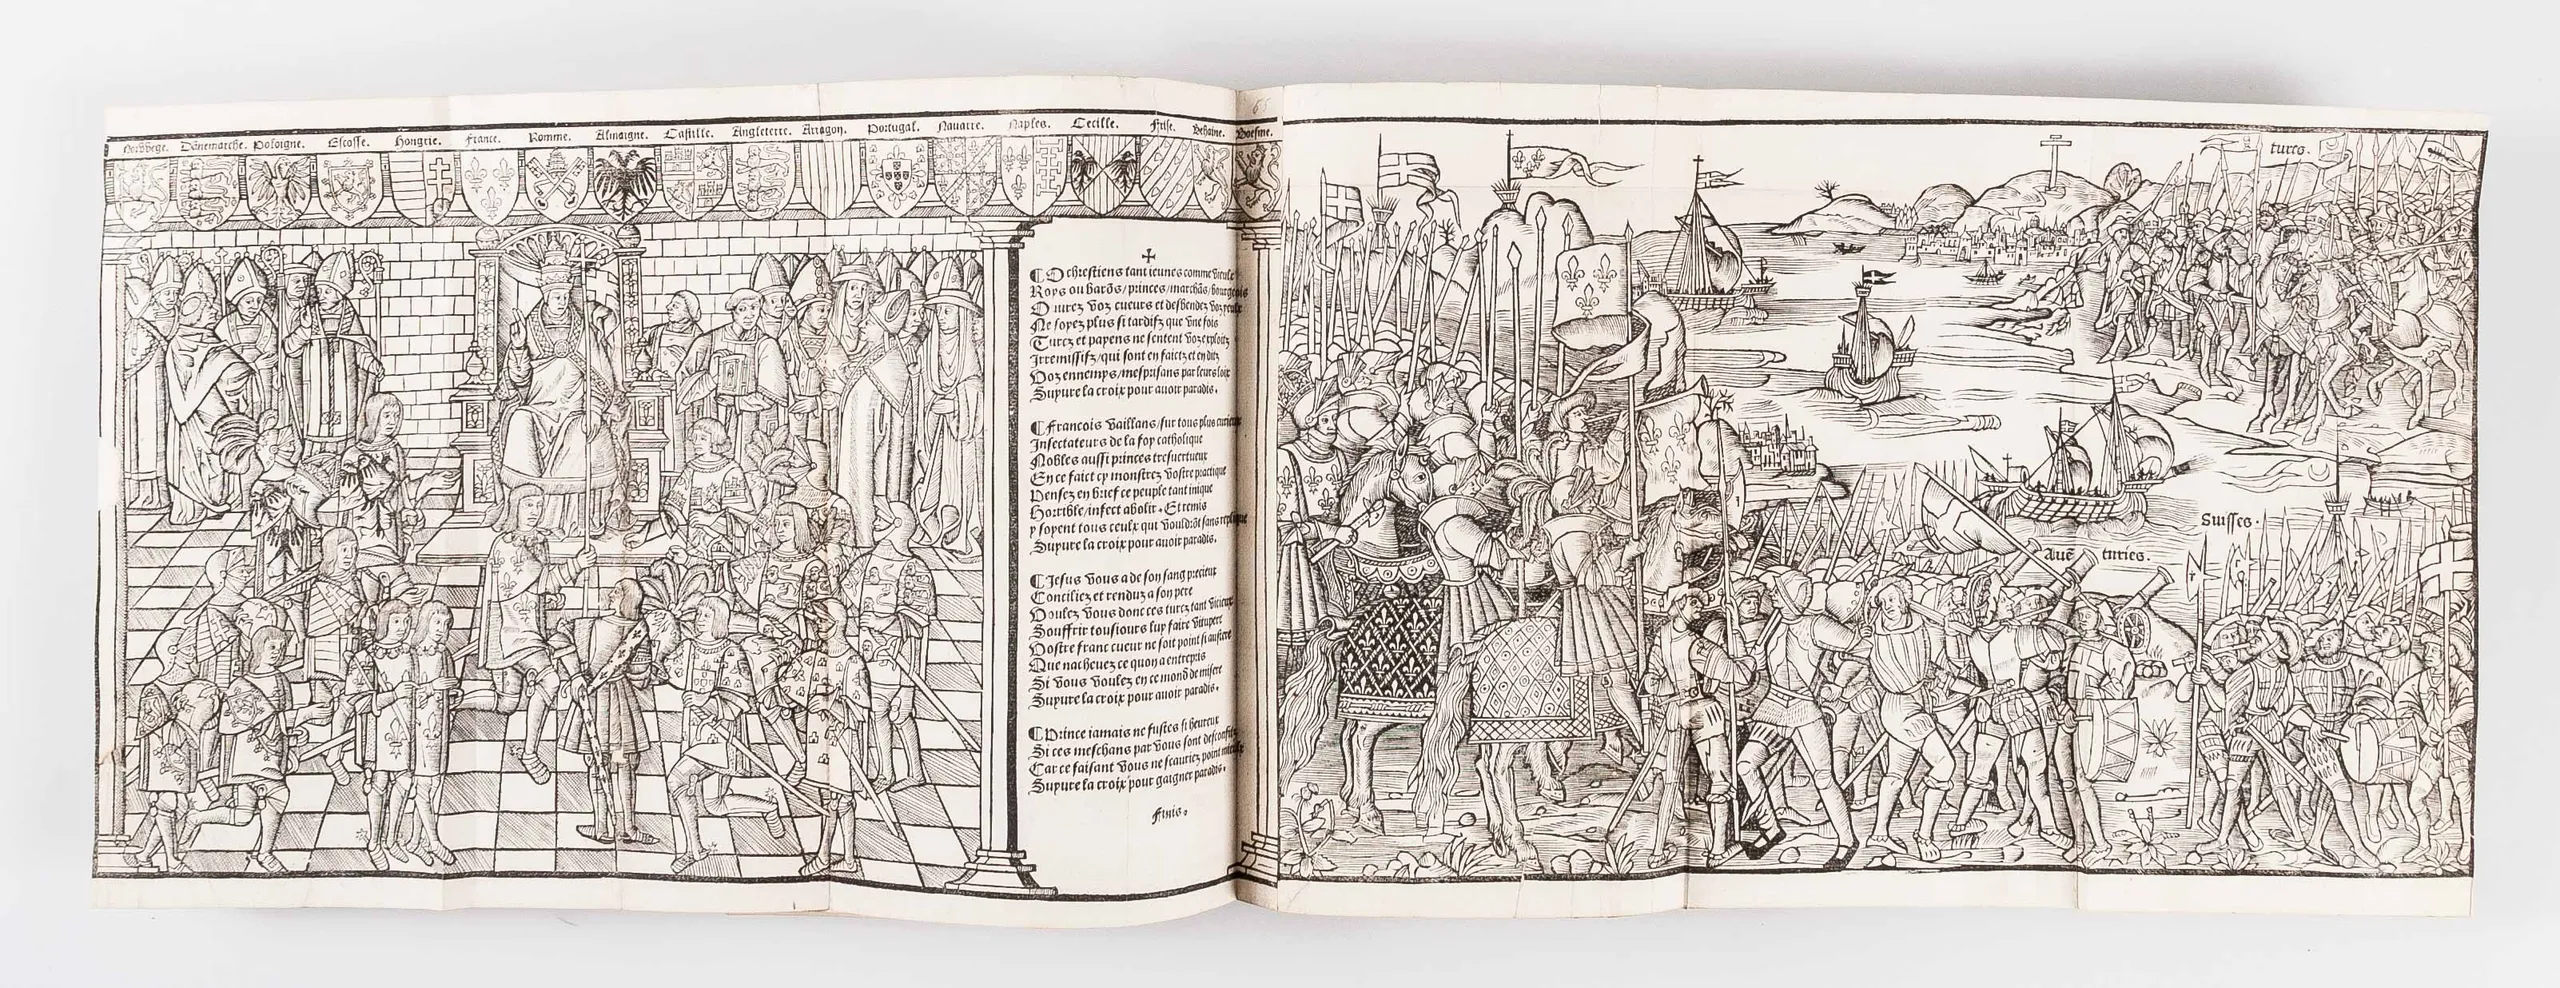 Norvvege. Dānemarche. Poloigne. Escosse. Hongrie. France. Romme. Almaigne. Castille. Angleterre. Arragon. Portugal. Navarre. Naples. Cecille. Frise. Behaine. Boesme.
65
O chrestiens tant ieunes comme vieulx
Roys ou barōs/princes/marchās/bourgeois
Ouurez voz cueurs et desbendez voz yeulx
Ne soyez plus si tardifz que vne fois
Turcz et payens ne sentent voz exploitz
Irremissifz/qui sont en faictz et en ditz
Voz ennemys/mesprisans par leurs loix
Suyure la croix pour auoir paradis.
Francois vaillans/sur tous plus curieux
Insectateurs de la foy catholique
Nobles aussi princes tresvertueux
En ce faict cy monstrez vostre practique
Pensez en brief ce peuple tant inique
Horrible/infect abolir. Et remis
y soyent tous ceulx qui vouldrōt sans replique
Suyure la croix pour auoir paradis.
Jesus vous a de son sang precieux
Conciliez et renduz a son pere
Voulez vous donc ces turcz tant vicieux
Souffrir tousiours luy faire vitupere
Vostre franc cueur ne soit point si austere
Que nacheuez ce quon a entrepris
Si vous voulez en ce monde misere
Suyure la croix pour auoir paradis.
Prince iamais ne fustes si heureux
Si ces meschans par vous sont desconfitz
Car ce faisant vous ne scauriez point
Suyure la croix pour gaigner paradis.
Finis.
turcs.
Suisses.
Auē turies.